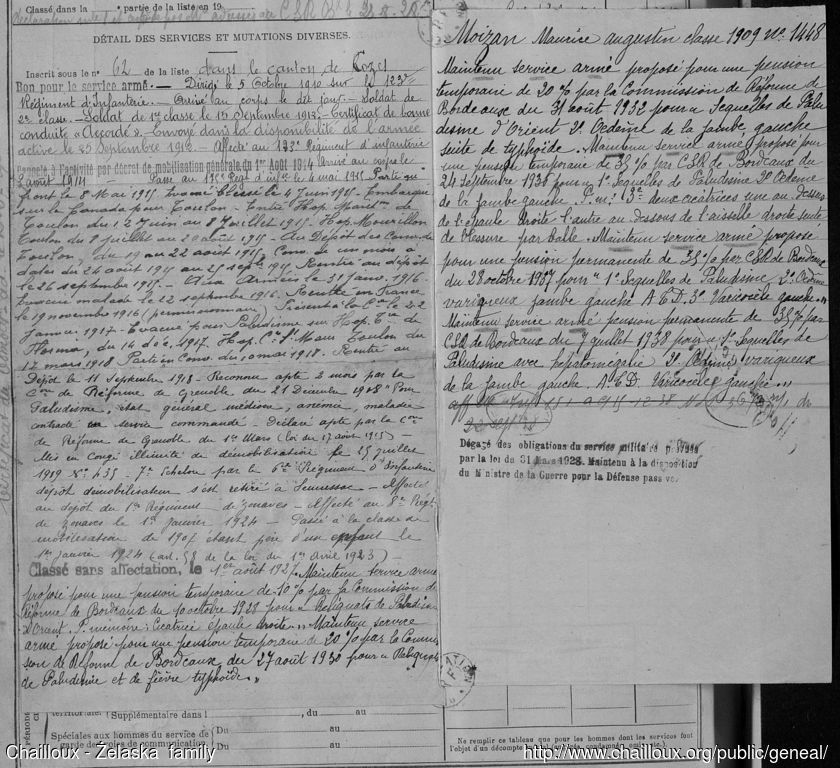 Classé dans la partie de la liste en 19
DÉTAIL DES SERVICES ET MUTATIONS DIVERSES.
Inscrit sous le n° 62 de la liste dans le canton de Cozes
Bon pour le service armé. — Dirigé le 5 Octobre 1910 sur le 123e
Régiment d'Infanterie. — Arrivé au corps le dit jour. — Soldat de
2e classe. — Soldat de 1re classe le 15 Septembre 1912. — Certificat de bonne
conduite « Accordé ». Envoyé dans la disponibilité de l'armée
active le 25 Septembre 1912. — Affecté au Régiment d'infanterie
Rappelé à l'activité par décret de mobilisation générale du 1er Août 1914 Arrivé au corps le
3 août 1914 Passé au Régt d'infie le 4 mai 1915. Parti au
front le 8 Mai 1915. Evacué blessé le 4 Juin 1915. Embarqué
sur le Canada pour Toulon. Entré Hop.
Toulon du 12 Juin au 8 Juillet 1915. Hop. Mourillon
Toulon du 8 juillet au août 1915 — Au Dépôt des Conv. de
Toulon, du 19 au 22 août 1915. Conv. de un mois à
dater du 24 août 1915 au 25 septbre 1915. Rentré au dépôt
le 26 septembre 1915. — Aux Armées le 31 Janv. 1916
Evacué malade le 22 septembre 1916. Rentré en France
le 19 novembre 1916 (permissionnaire) le 22
Janvier 1917 — Evacué pour Paludisme sur Hop.
Florina, du 14 déc. 1917. Hop. St Mans Toulon du
17 mars 1918 Parti en Conv. du 10 mai 1918. Rentré au
Dépôt le 11 Septembre 1918 — Reconnu apte 2 mois par la
Con de Réforme de Grenoble du 21 Décembre 1918 "Pour
Paludisme, état général médiocre, anémie, maladie
contractée en service commandé — Déclaré apte par la Con
de Réforme de Grenoble du 1er Mars (loi du 17 août 1915) —
Mis en Congé illimité de démobilisation le 25 juillet
1919 N° 435 — 7e Echelon par le 6e Régiment d'Infanterie
dépôt démobilisateur s'est retiré à Semussac — Affecté
au dépôt du 1er Régiment de Zouaves — Affecté au 8e Régt
de Zouaves le 1er Janvier 1924 — Passé à la classe de
mobilisation de 1907 étant père d'un enfant le
1er Janvier 1924 (art. 58 de la loi du 1er Avril 1923) —
Classé sans affectation, le 1er août 1927. Maintenu service armé
proposé pour une pension temporaire de 10% par la Commission de
Réforme de Bordeaux du 10 octobre 1928 pour « Reliquats de Paludisme
d'Orient. P. mémoire : Cicatrice épaule droite. » Maintenu service
armé proposé pour une pension temporaire de 20% par la Commis
sion de Réforme de Bordeaux du 27 août 1930 pour « Reliquats
de Paludisme et de fièvre typhoïde. »
territoriale. (Supplémentaire dans l , du au
Spéciales aux hommes du service de Du au
garde des voies de communication. Du au
PÉRIODE
Moizan Maurice augustin classe 1909 No 1448
Maintenu service armé proposé pour une pension
temporaire de 20% par la Commission de Réforme de
Bordeaux du 31 août 1932 pour « Sequelles de Palu
disme d'Orient 2° Oedème de la jambe gauche
suite de typhoïde. » Maintenu service armé proposé pour
une pension temporaire de 35% par CSR de Bordeaux du
24 septembre 1936 pour « 1° Sequelles de Paludisme 2° Oedème
de la jambe gauche. P.m: 3° deux cicatrices une au dessus
de l'épaule droite l'autre au dessous de l'aisselle droite suite
de blessure par balle. » Maintenu service armé proposé
pour une pension permanente de 35% par CSR de Bordeaux
du 28 octobre 1937 pour « 1° Sequelles de Paludisme 2° Oedème
variqueux jambe gauche A C D. 3° Varicocèle gauche. »
Maintenu service armé pension permanente de 35% par
CSR de Bordeaux du 7 juillet 1938 pour « 1° Sequelles de
Paludisme avec hépatomégalie 2° Oedème variqueux
de la jambe gauche. A C D. Varicocèle gauche. »
Dégagé des obligations du service militaire
par la loi du 31 Mars 1928. Maintenu à la disposition
du Ministre de la Guerre pour la Défense passive.
Ne remplir ce tableau que pour les hommes dont les services font
l'objet d'un décompte
Chailloux - Żelaska family
http://www.chailloux.org/public/geneal/